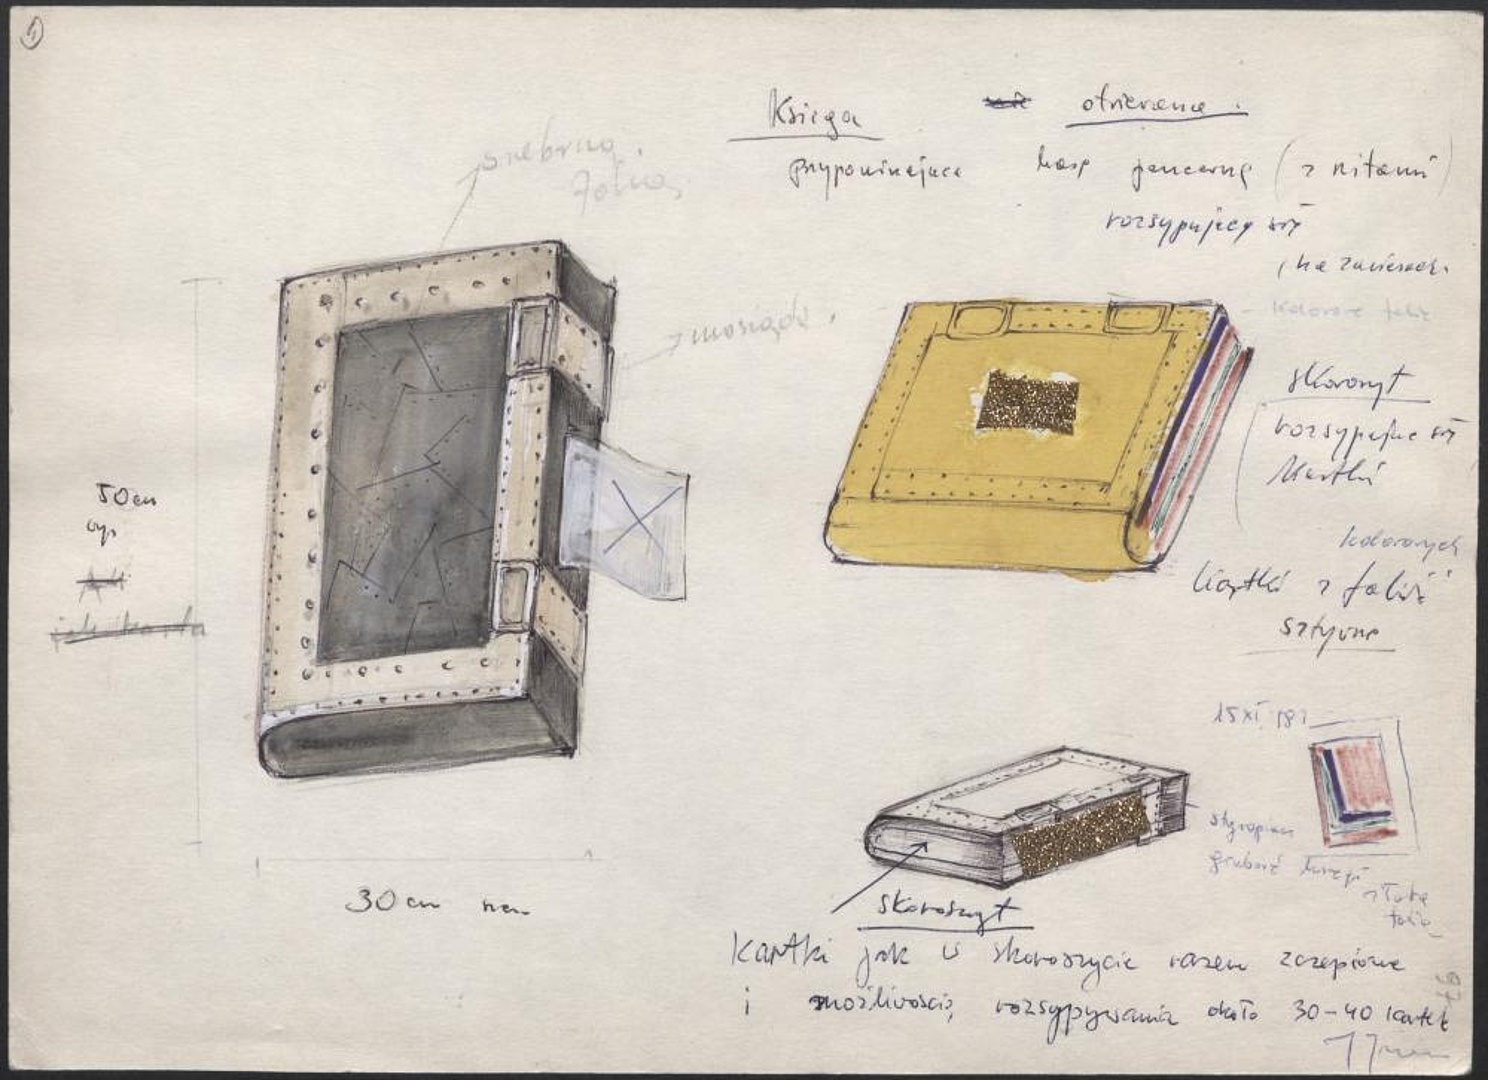 1
Księga otwierana.
przypominająca kasę pancerną (z nitami)
rozsypujący się
, na zawiasach.
srebrną.
folią,
mosiądz.
kolorowe folie
skoroszyt
rozsypujące się
kartki
kolorowych
kartki z folii
sztywne
50 cm
wys
30 cm szer
15 XI 181
styropian
grubość księgi
złota
folia
skoroszyt
kartki jak w skoroszycie razem zczepione
i możliwością rozsypywania około 30-40 kartek